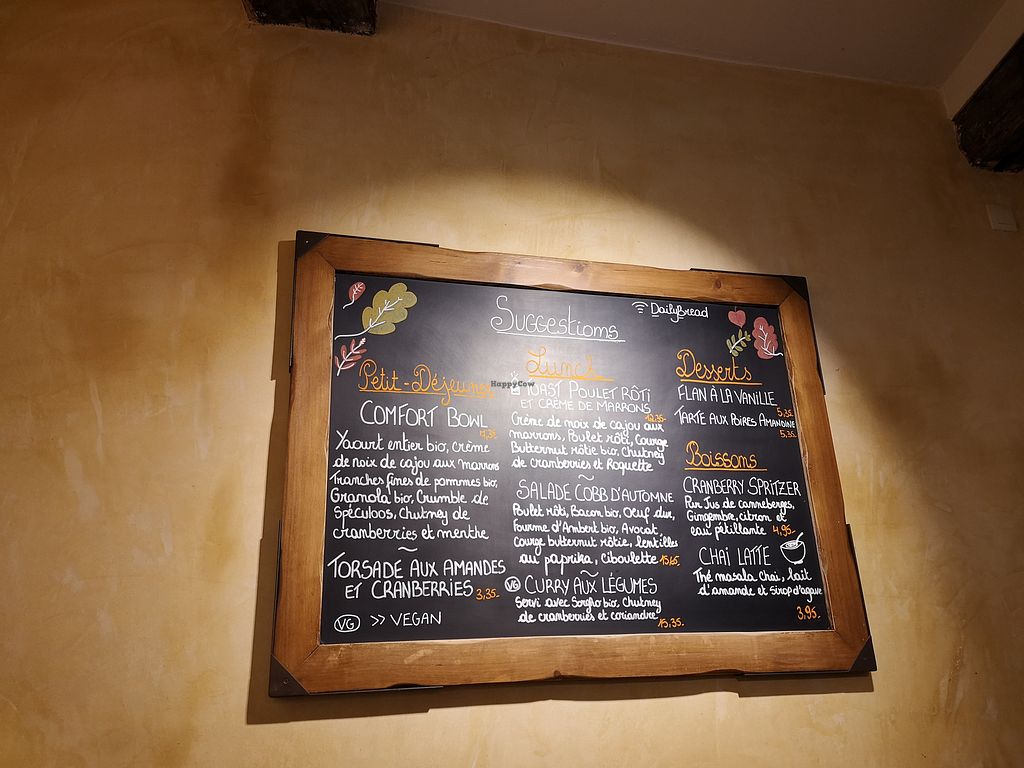 Suggestions
DailyBread
Petit-Déjeuner
COMFORT BOWL
Yaourt entier bio, crème
de noix de cajou aux marrons
tranches fines de pommes bio,
Granola bio, Crumble de
Spéculoos, Chutney de
cranberries et menthe
~
TORSADE AUX AMANDES
ET CRANBERRIES 3,35.
VG >> VEGAN
HappyCow
Lunch
TOAST POULET RÔTI
ET CRÈME DE MARRONS
Crème de noix de cajou aux
marrons, Poulet rôti, Courge
Butternut rôtie bio, Chutney
de cranberries et Roquette
~
SALADE COBB D'AUTOMNE
Poulet rôti, Bacon bio, Oeuf dur,
Fourme d'Ambert bio, Avocat,
Courge butternut rôtie, lentilles
au paprika, ciboulette 15,65.
~
VG CURRY AUX LÉGUMES
Servi avec Sorgho bio, Chutney
de cranberries et coriandre
15,35.
Desserts
FLAN À LA VANILLE
5,35.
TARTE AUX POIRES AMANDINE
5,35.
Boissons
CRANBERRY SPRITZER
Pur Jus de canneberges,
Gingembre, citron et
eau pétillante 4,95.
CHAÏ LATTE
Thé masala chaï, lait
d'amande et Sirop d'agave
3,95.